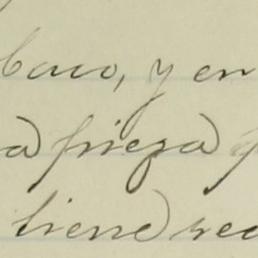 baco, y en
a pieza
tiene rec